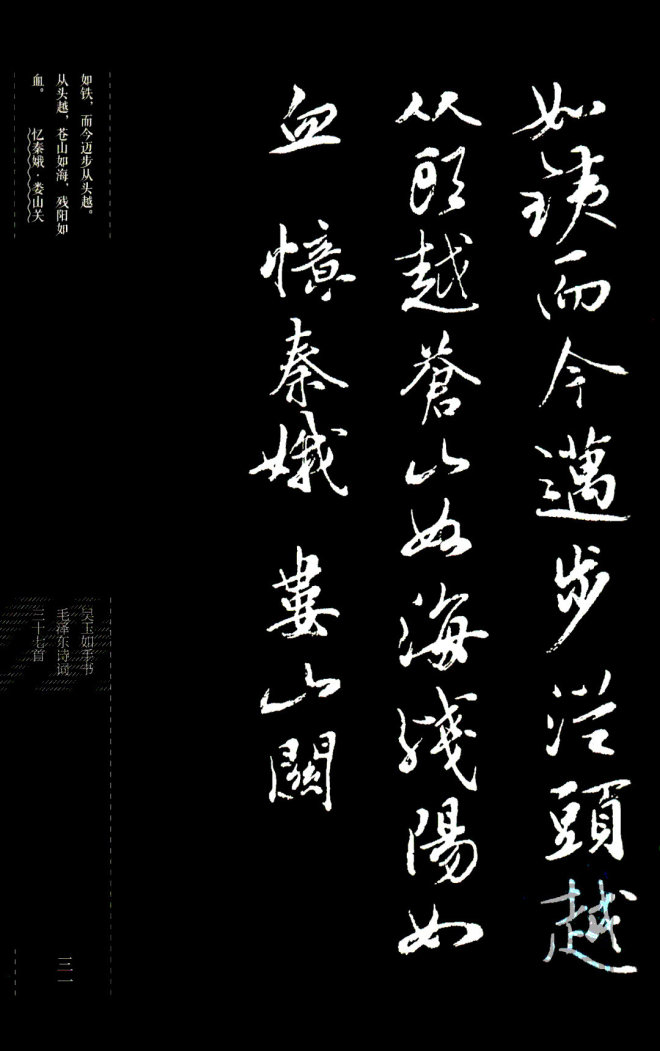 如鐵而今邁步從頭越
从頭越蒼山如海殘陽如
血 憶秦娥 婁山關
如铁，而今迈步从头越。
从头越，苍山如海，残阳如
血。 忆秦娥·娄山关
吴玉如手书
毛泽东诗词
三十七首
三一